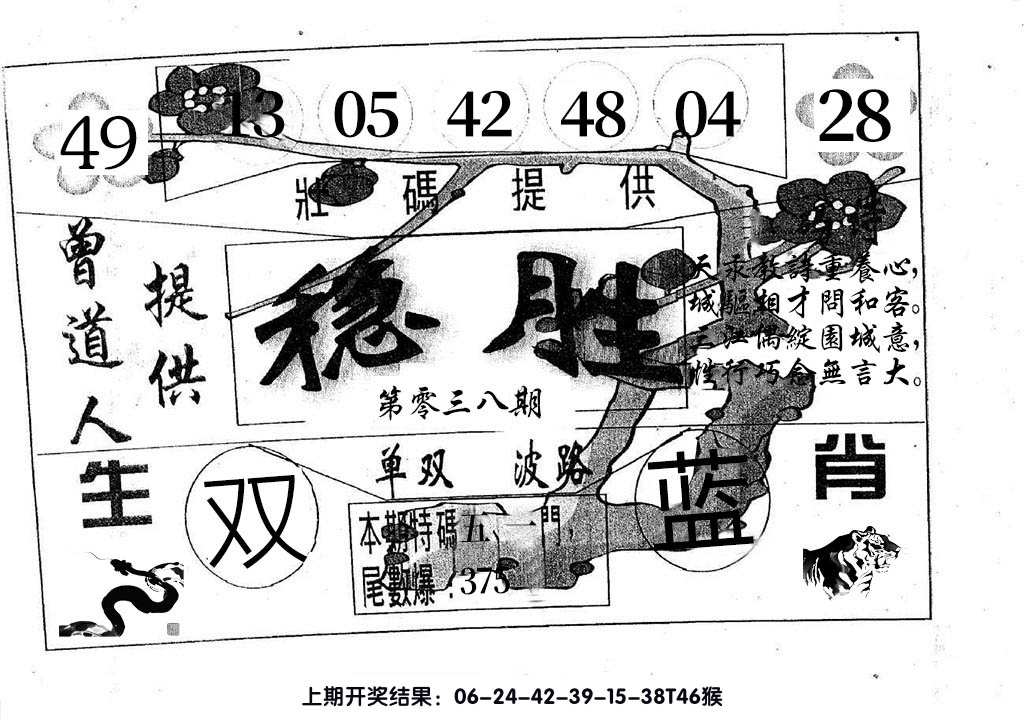 49 13 05 42 48 04 28
壯碼提供
曾道人
提供
稳胜
第零三八期
城驅相才問和客。
三江偶綻園城意,
性行巧念無言大。
单双 波路
生 双 蓝 肖
本期特碼五、一門,
尾數爆:375
上期开奖结果:06-24-42-39-15-38T46猴